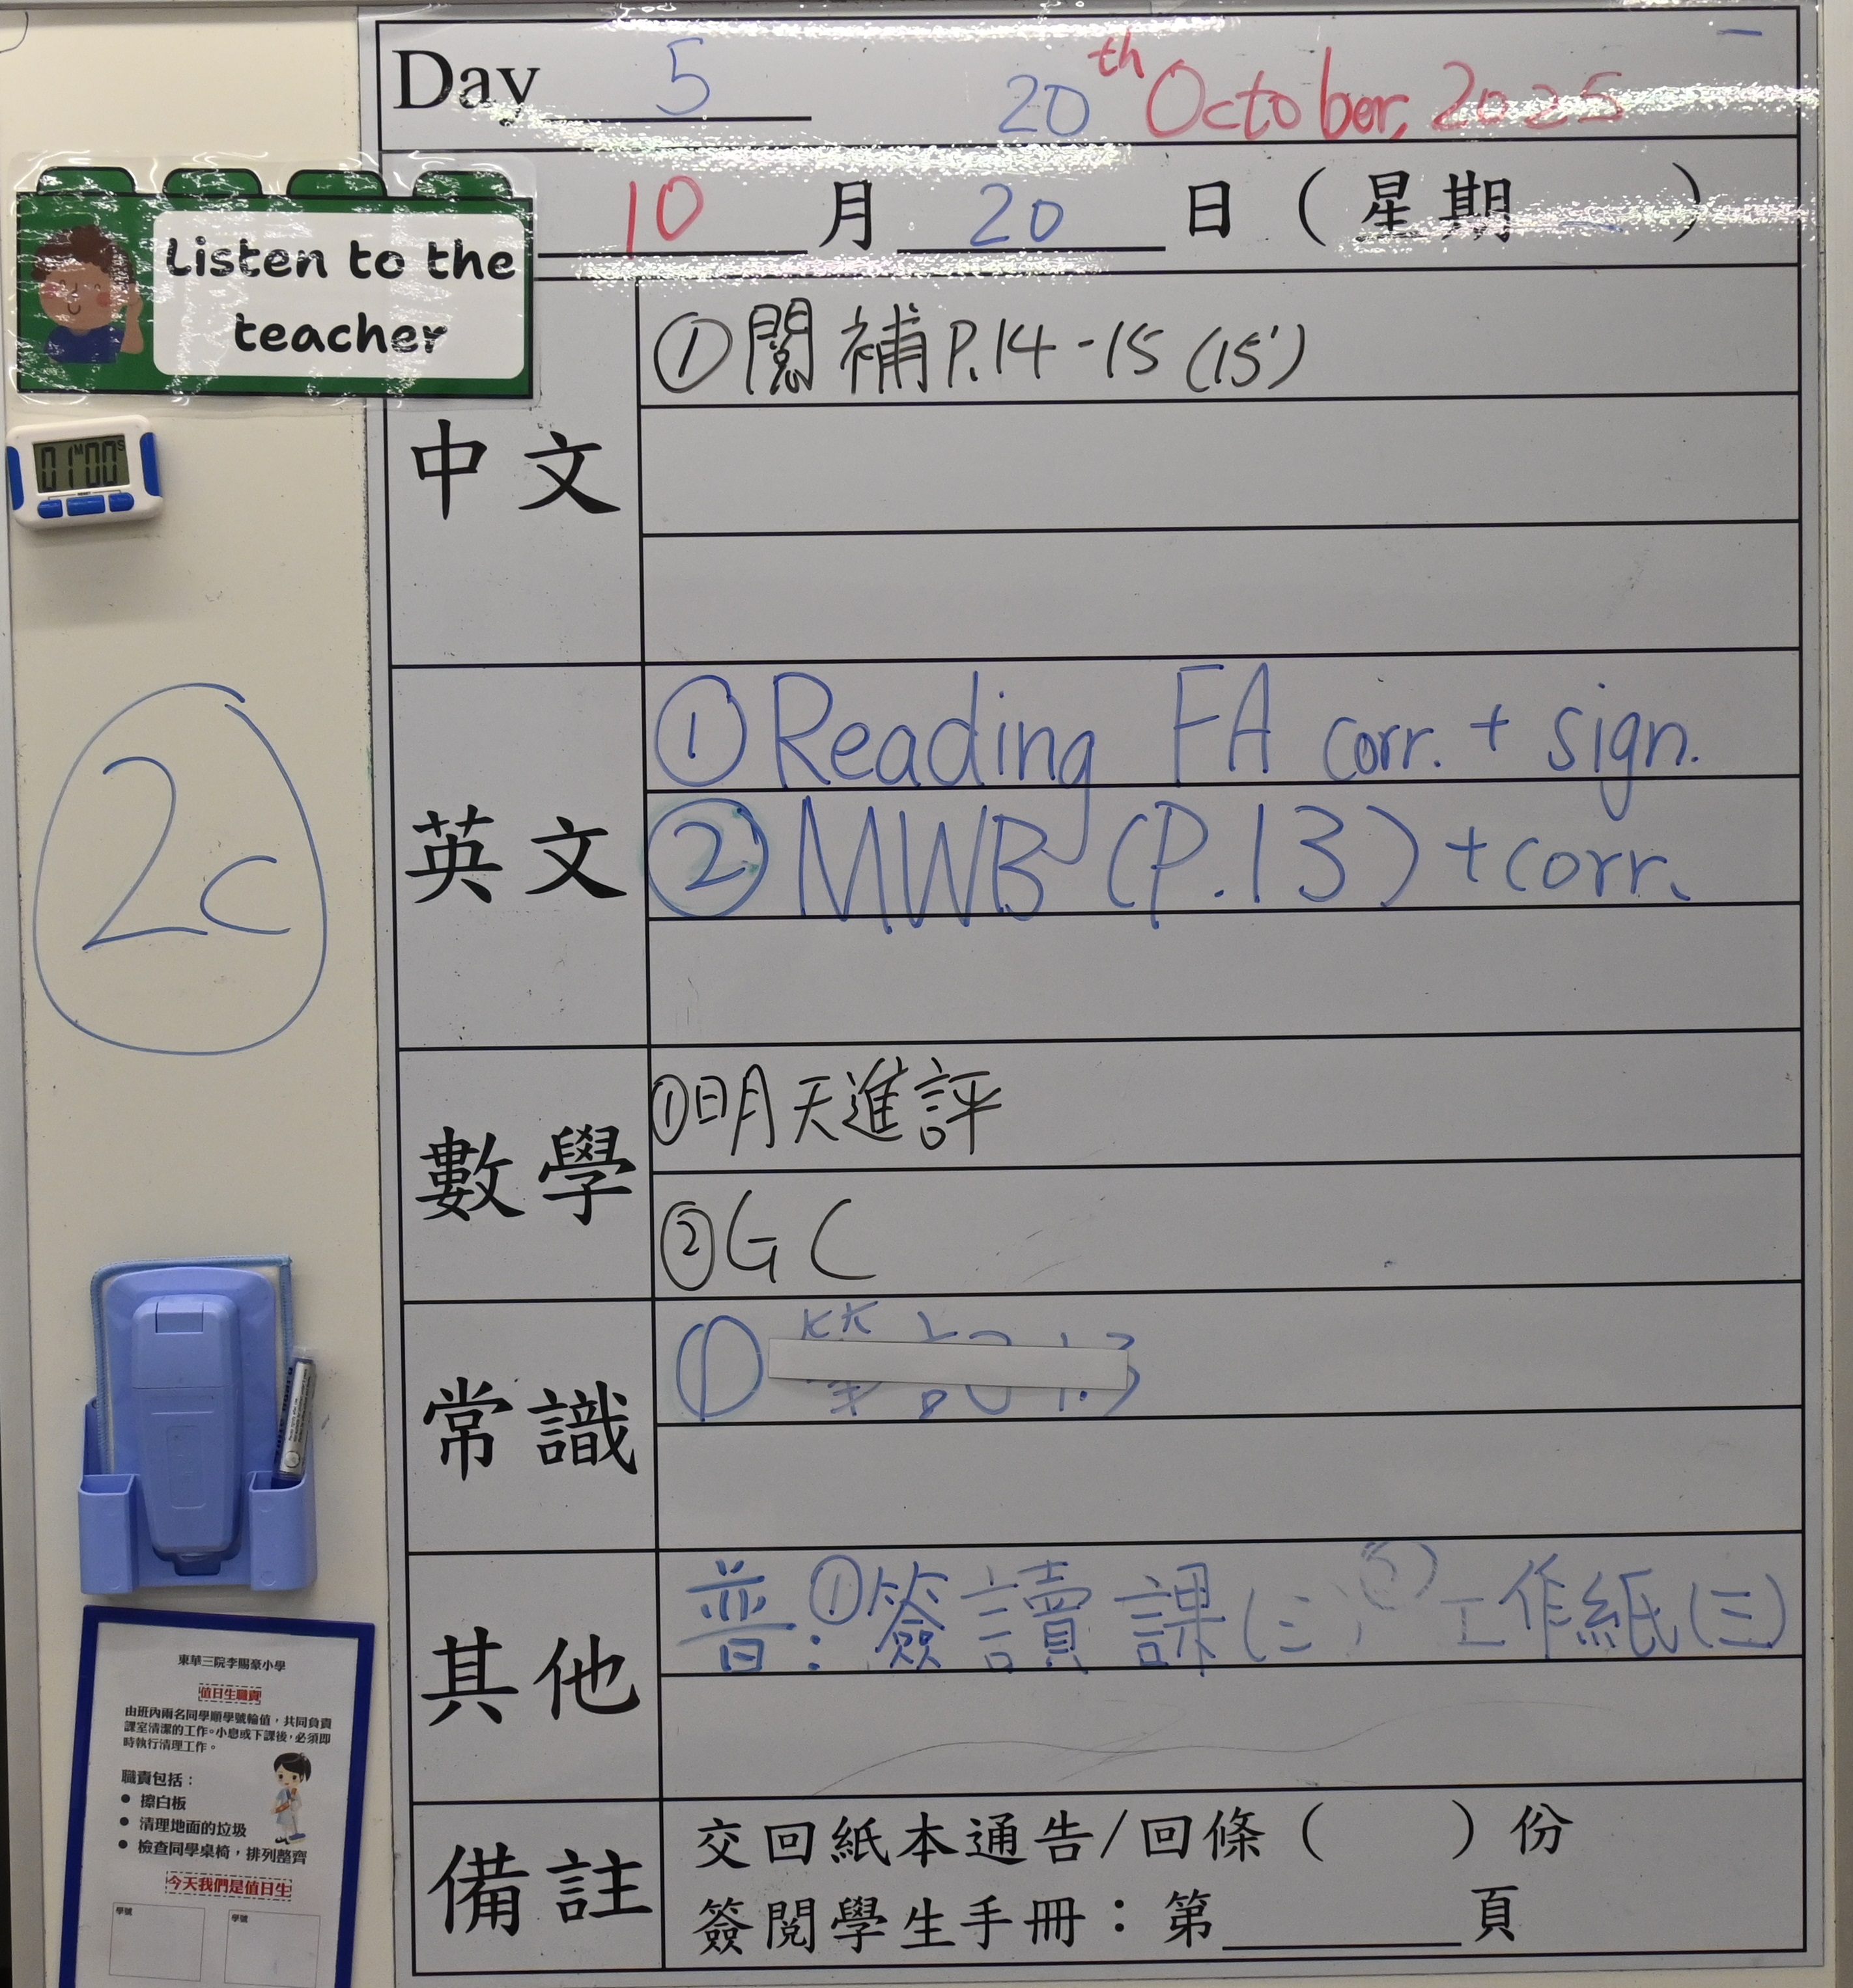 Day 5 20th October, 2025 一
10 月 20 日 ( 星期 )
Listen to the
teacher
01 M 00 S
中文
①閱補P.14-15 (15')
2C
英文
①Reading FA corr. + sign.
②MWB (P.13) + corr.
數學
①明天進評
②GC
常識
①
其他
普:①簽讀課(三)②工作紙(三)
備註
交回紙本通告/回條 ( ) 份
簽閱學生手冊:第 頁
東華三院李賜豪小學
值日生職責
由班內兩名同學順學號輪值,共同負責
課室清潔的工作。小息或下課後,必須即
時執行清理工作。
職責包括:
● 擦白板
● 清理地面的垃圾
● 檢查同學桌椅,排列整齊
今天我們是值日生
學號 學號